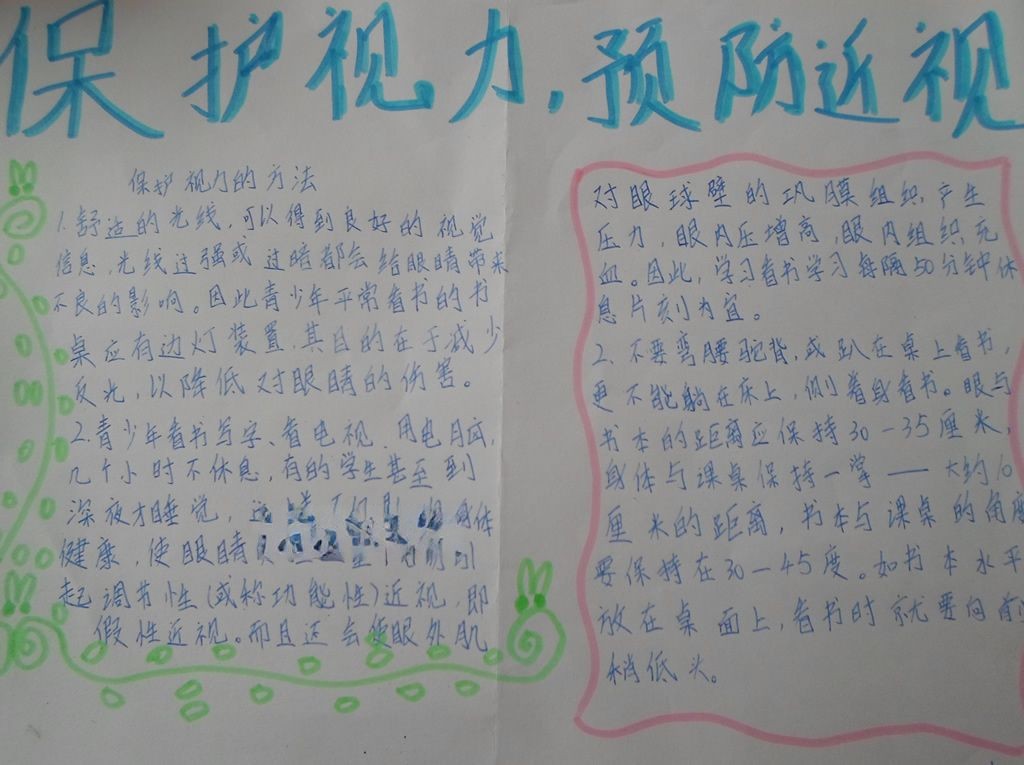 保护视力,预防近视
保护视力的方法
1.舒适的光线,可以得到良好的视觉
信息,光线过强或过暗都会给眼睛带来
不良的影响。因此青少年平常看书的书
桌应有边灯装置.其目的在于减少
反光,以降低对眼睛的伤害。
2.青少年看书写字、看电视、用电脑,
几个小时不休息,有的学生甚至到
深夜才睡觉,身体
健康,使眼睛引
起调节性(或称功能性)近视,即
假性近视。而且还会使眼外肌
对眼球壁的巩膜组织,产生
压力,眼内压增高,眼内组织充
血。因此,学习看书学习每隔50分钟休
息片刻为宜。
2.不要弯腰驼背,或趴在桌上看书,
更不能躺在床上,侧着身看书。眼与
书本的距离应保持30-35厘米,
身体与课桌保持一掌——大约10
厘米的距离,书本与课桌的角度
要保持在30-45度。如书本水平
放在桌面上,看书时就要向前
稍低头。